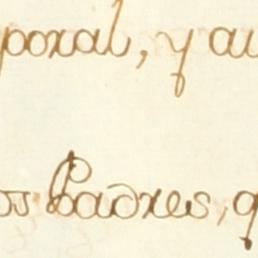 poral, y au
os Padres, q